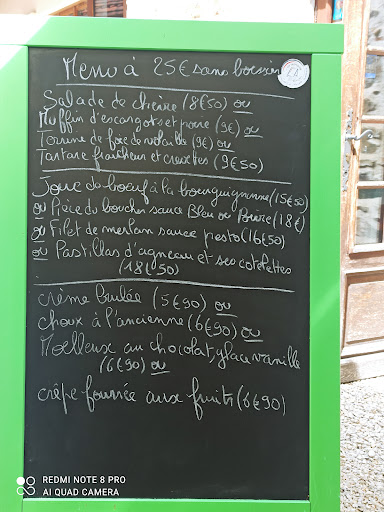 Menu à 25€ sans boisson
Salade de chèvre (8€50) ou
Muffin d'escargots et poire (9€) ou
Terrine de foie de volaille (9€) ou
Tartare fraîcheur et crevettes (9€50)
Joue de boeuf à la bourguignonne (15€50)
ou Pièce du boucher sauce Bleu ou Poivre (18€)
ou Filet de merlan sauce pesto (16€50)
ou Pastillas d'agneau et ses cotelettes
(18€50)
crème brulée (5€90) ou
choux à l'ancienne (6€90) ou
Moelleux au chocolat, glace vanille
(6€90) ou
crêpe fourrée aux fruits (6€90)
REDMI NOTE 8 PRO
AI QUAD CAMERA